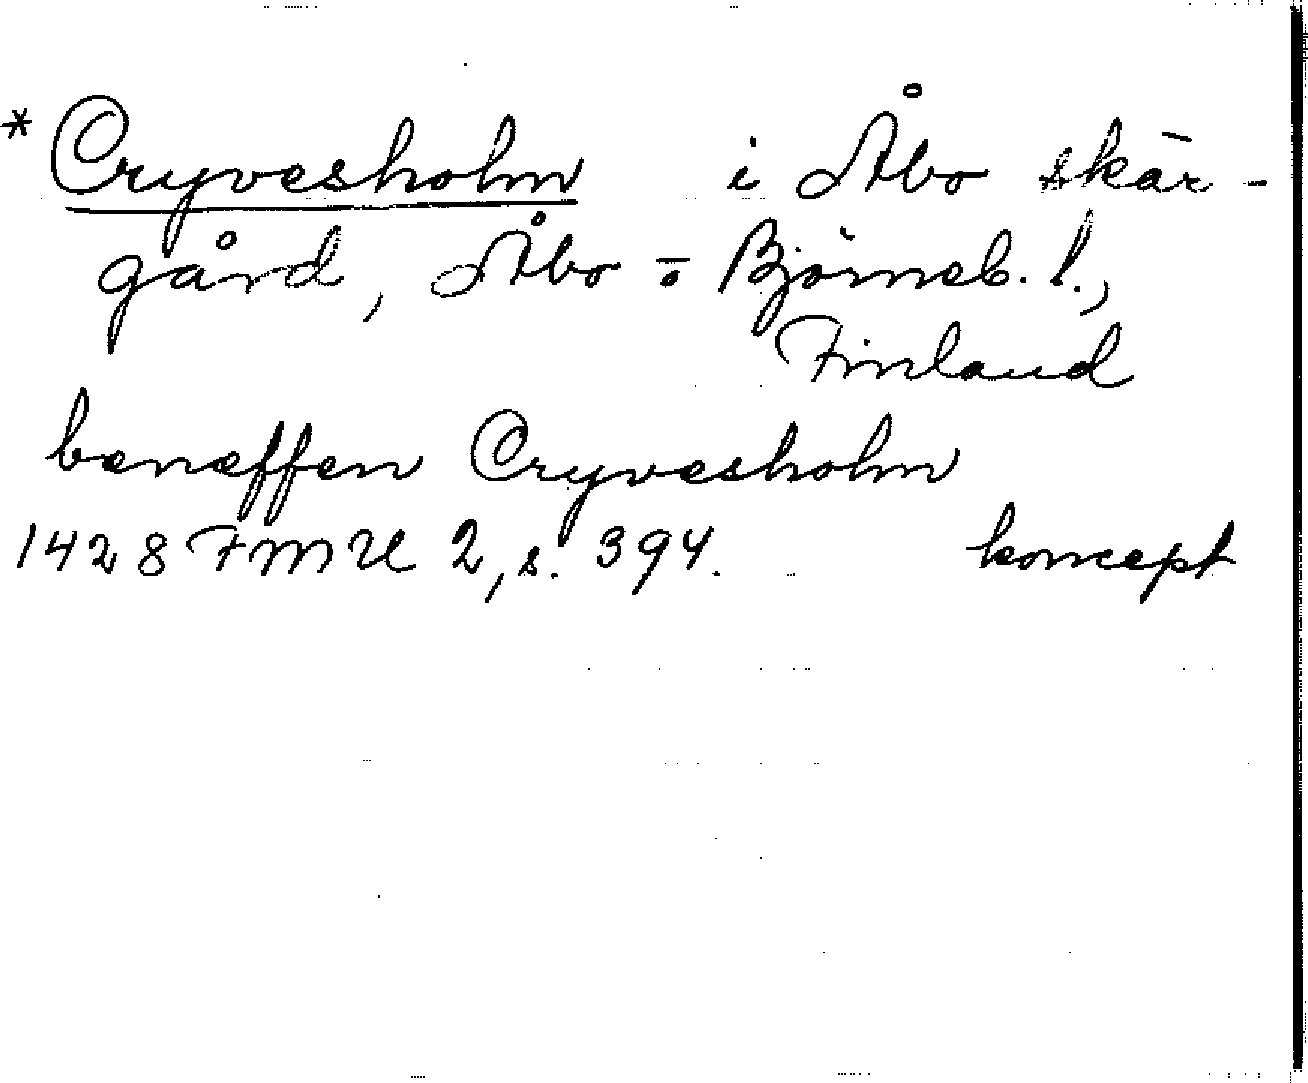 * Cryvesholm i Åbo skär-
gård, Åbo o Björneb. l.,
Finland
benæffen Cryvesholm
1428 FMU 2, s. 394. koncept